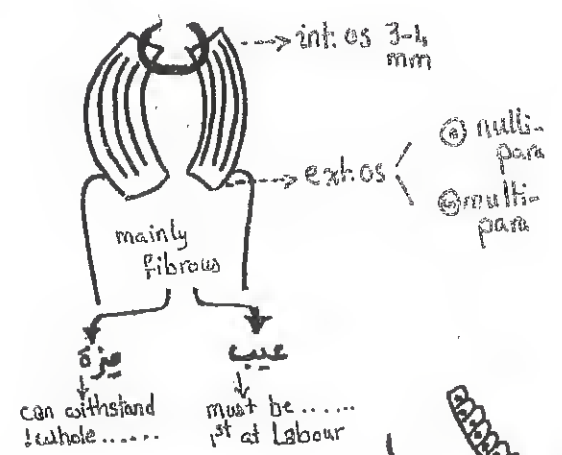 int. os 3-4
mm
ext. os
nulli-
para
multi-
para
mainly
fibrous
ميزة
عيب
can withstand
! whole ......
must be ......
1st at Labour